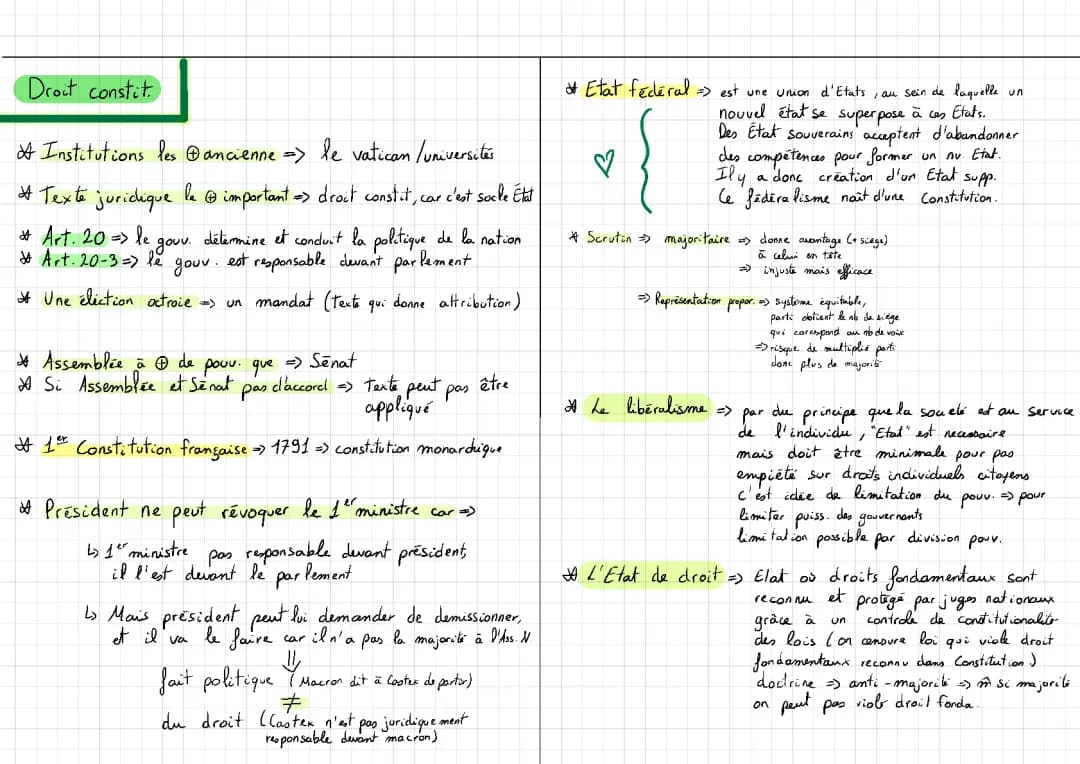 Droit constit.
* Institutions les ⊕ ancienne => le vatican /universités
* Texte juridique le ⊕ important => droit constit, car c'est socle État
* Art. 20 => le gouv. détermine et conduit la politique de la nation
* Art. 20-3 => le gouv. est responsable devant parlement
* Une élection octroie => un mandat (Texte qui donne attribution)
* Assemblée à ⊕ de pouv. que => Sénat
* Si Assemblée et Sénat pas d'accord => Texte peut pas être
appliqué
* 1er Constitution française => 1791 => constitution monarchique
* Président ne peut révoquer le 1er ministre car =>
↳ 1er ministre pas responsable devant président,
il l'est devant le parlement
↳ Mais président peut lui demander de demissionner,
et il va le faire car il n'a pas la majorité à l'Ass. N
⇓
fait politique (Macron dit à Castex de partir)
≠
du droit (Castex n'est pas juridiquement
responsable devant macron)
* Etat fédéral => est une union d'Etats, au sein de laquelle un
nouvel état se superpose à ces États.
Des État souverains acceptent d'abandonner
des compétences pour former un nv Etat.
Il y a donc création d'un Etat supp.
Ce fédéralisme naît d'une Constitution.
* Scrutin => majoritaire => donne avantage (+ siège)
à celui en tête
=> injuste mais efficace
=> Représentation propor. => système équitable,
parti obtient le nb de siège
qui correspond au nb de voix
=> risque de multiplié parti
donc plus de majorité
* Le libéralisme => par du principe que la société est au service
de l'individu, "Etat" est necessaire
mais doit être minimale pour pas
empiété sur droits individuels citoyens
c'est idée de limitation du pouv. => pour
limiter puiss. des gouvernants
limitation possible par division pouv.
* L'Etat de droit => Etat où droits fondamentaux sont
reconnu et protégé par juges nationaux
grâce à un controle de constitutionalité
des lois (on censure loi qui viole droit
fondamentaux reconnu dans Constitution)
doctrine => anti-majorité => m̂ si majorité
on peut pas violer droit fonda.